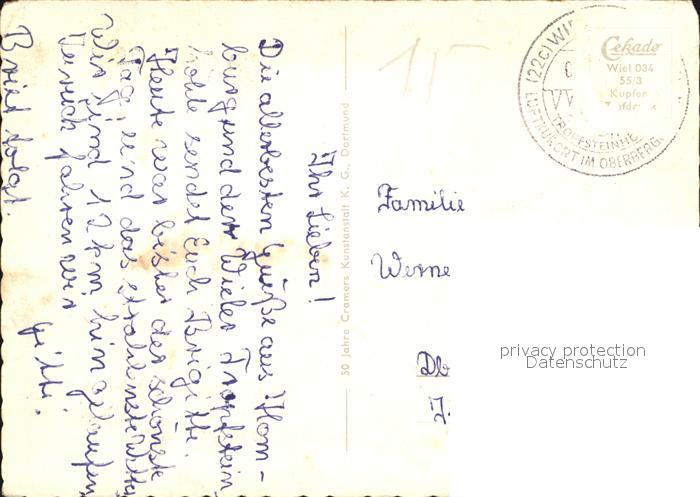 Ihr Lieben!
Die allerbesten Grüße aus Hom-
burg und der Wieler Tropfstein
höhle sendet Euch Brigitte.
Heute war bisher der schönste
Tag, und das strahlenste Wetter
Wir sind 12 km hingelaufen,
zurück fahren wir
Brief folgt.
Gitti.
50 Jahre Cramers Kunstanstalt K. G., Dortmund
15
(22c) WI
TROPFSTEINH
LUFTKURORT IM OBERBERG.
Cekade
Wiel 034
55/3
Kupfer
Tiefdruck
Familie
Werne
privacy protection
Datenschutz